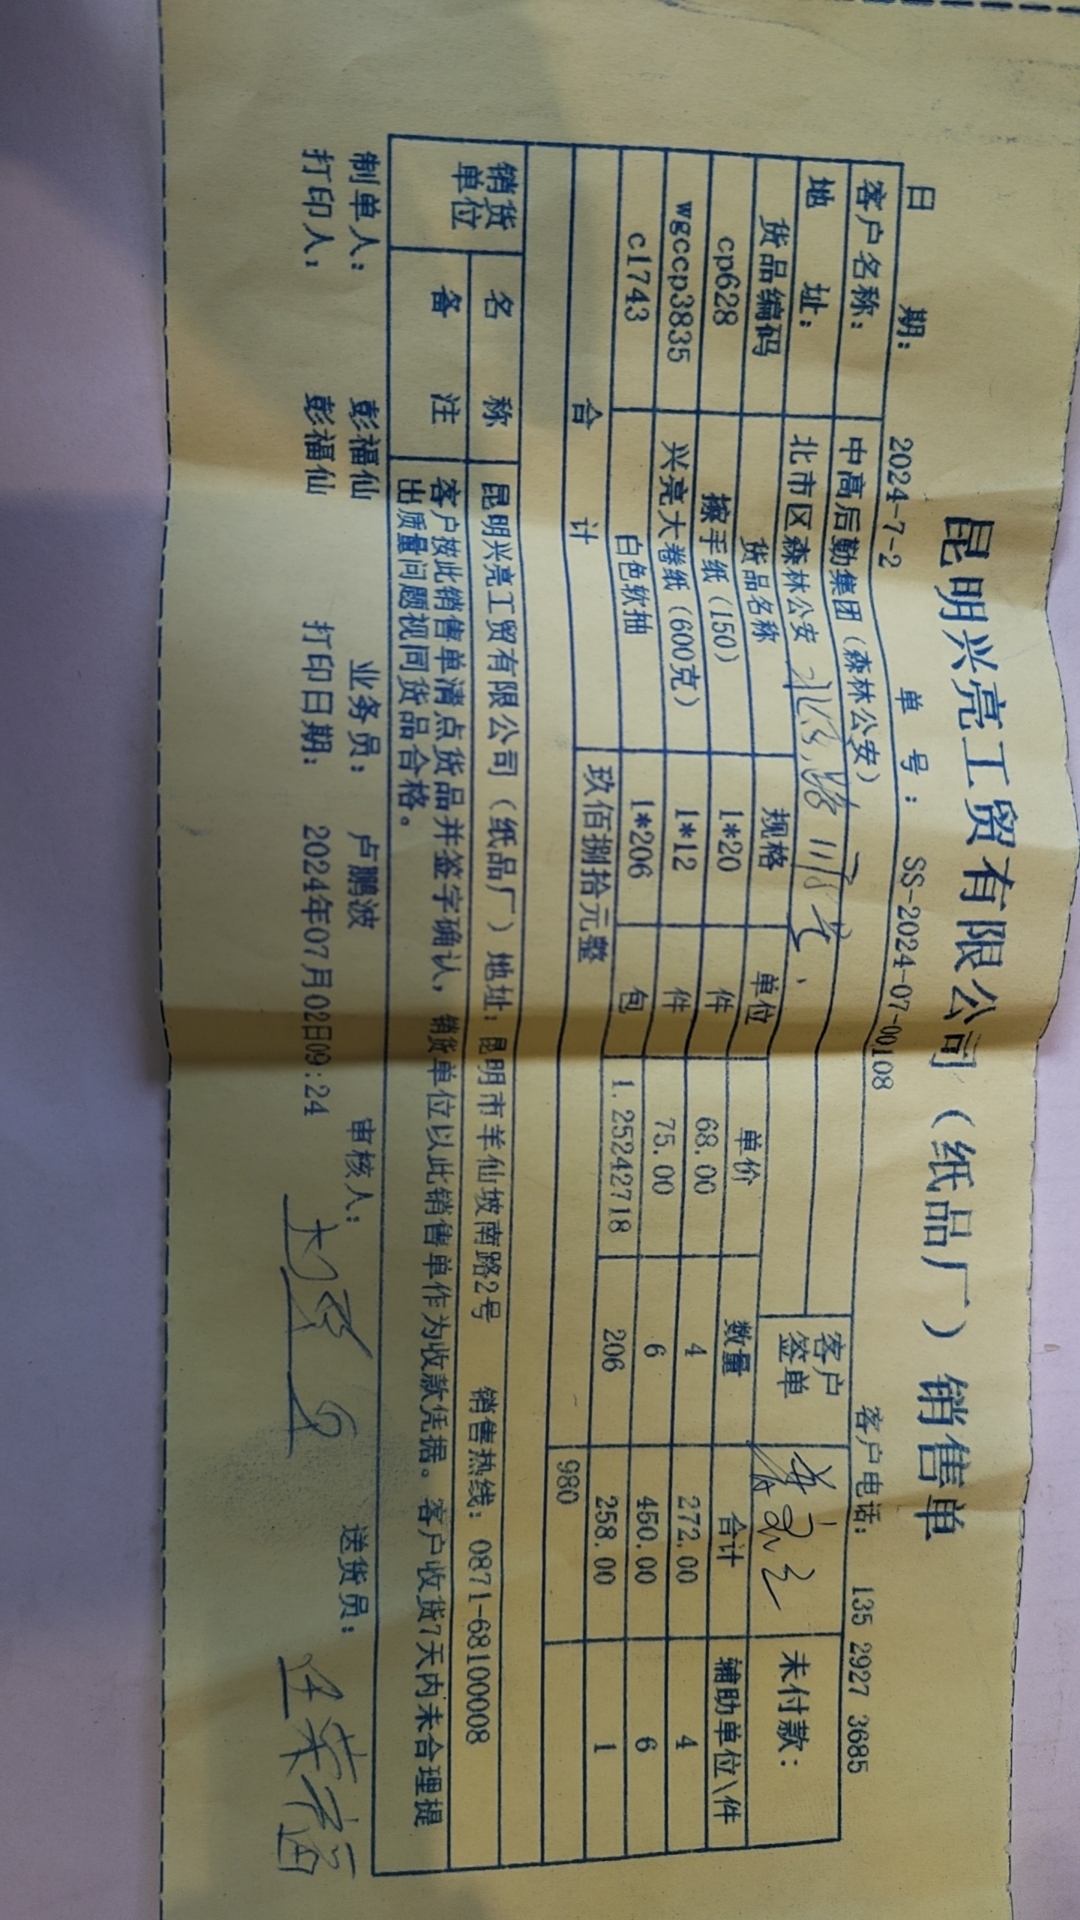 昆明兴亮工贸有限公司（纸品厂）销售单
日 期： 2024-7-2 单 号： SS-2024-07-00108 客户电话： 135 2927 3685
客户名称： 中高后勤集团（森林公安） 客户签单 未付款：
地 址： 北市区森林公安
货品编码 货品名称 规格 单位 单价 数量 合计 辅助单位\件
cp628 擦手纸（150） 1*20 件 68.00 4 272.00 4
wgccp3835 兴亮大卷纸（600克） 1*12 件 75.00 6 450.00 6
c1743 白色软抽 1*206 包 1.25242718 206 258.00 1
合 计 玖佰捌拾元整 980
销货单位 名 称 昆明兴亮工贸有限公司（纸品厂）地址：昆明市羊仙坡南路2号 销售热线：0871-68100008
备 注 客户按此销售单清点货品并签字确认，销货单位以此销售单作为收款凭据。客户收货7天内未合理提
出质量问题视同货品合格。
制单人： 彭福仙 业务员： 卢鹏波 审核人： 送货员：
打印人： 彭福仙 打印日期： 2024年07月02日09:24